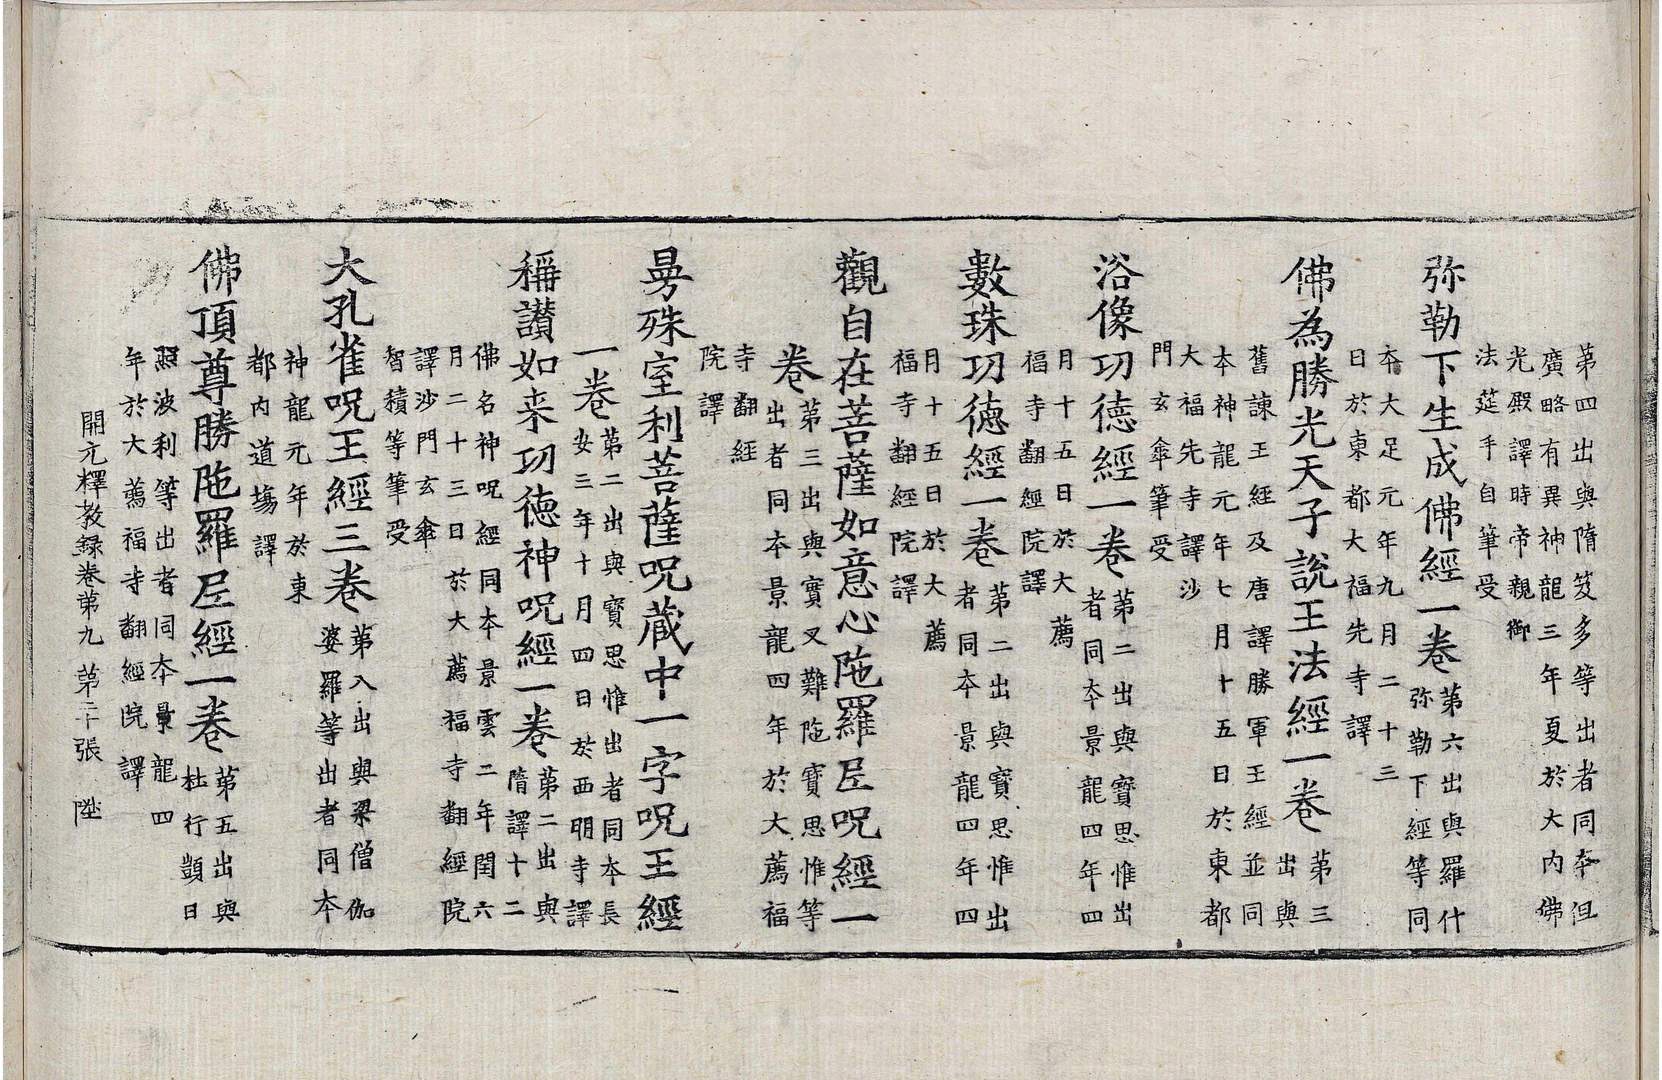 第四出與隋笈多等出者同夲但
廣略有異神龍三年夏於大內佛
光殿譯時帝親御
法莚手自筆受
弥勒下生成佛經一卷第六出與羅什
弥勒下經等同
夲大足元年九月二十三
日於東都大福先寺譯
佛為勝光天子說王法經一卷第三
出與
舊諫王經及唐譯勝軍王經並同
夲神龍元年七月十五日於東都
大福先寺譯沙
門玄傘筆受
浴像功徳經一卷第二出與寶思惟出
者同夲景龍四年四
月十五日於大薦
福寺翻經院譯
數珠功徳經一卷第二出與寶思惟出
者同夲景龍四年四
月十五日於大薦
福寺翻經院譯
觀自在菩薩如意心陁羅尼呪經一
卷第三出與實叉難陁寶思惟等
出者同夲景龍四年於大薦福
寺翻經
院譯
曼殊室利菩薩呪蔵中一字呪王經
一卷第二出與寶思惟出者同本長
安三年十月四日於西明寺譯
稱讃如来功徳神呪經一卷第二出與
隋譯十二
佛名神呪經同夲景雲二年閏六
月二十三日於大薦福寺翻經院
譯沙門玄傘
智積等筆受
大孔雀呪王經三卷第八出與梁僧伽
婆羅等出者同夲
神龍元年於東
都内道塲譯
佛頂尊勝陁羅尼經一卷第五出與
杜行顗日
照波利等出者同夲景龍四
年於大薦福寺翻經院譯
開元釋教録卷第九 第二十張 陞